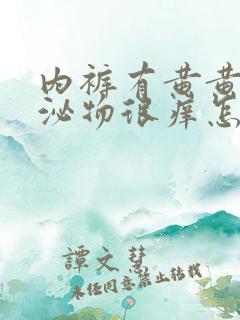 内裤有黄黄
泌物很痒怎
譚文慧
未经同意禁止转载